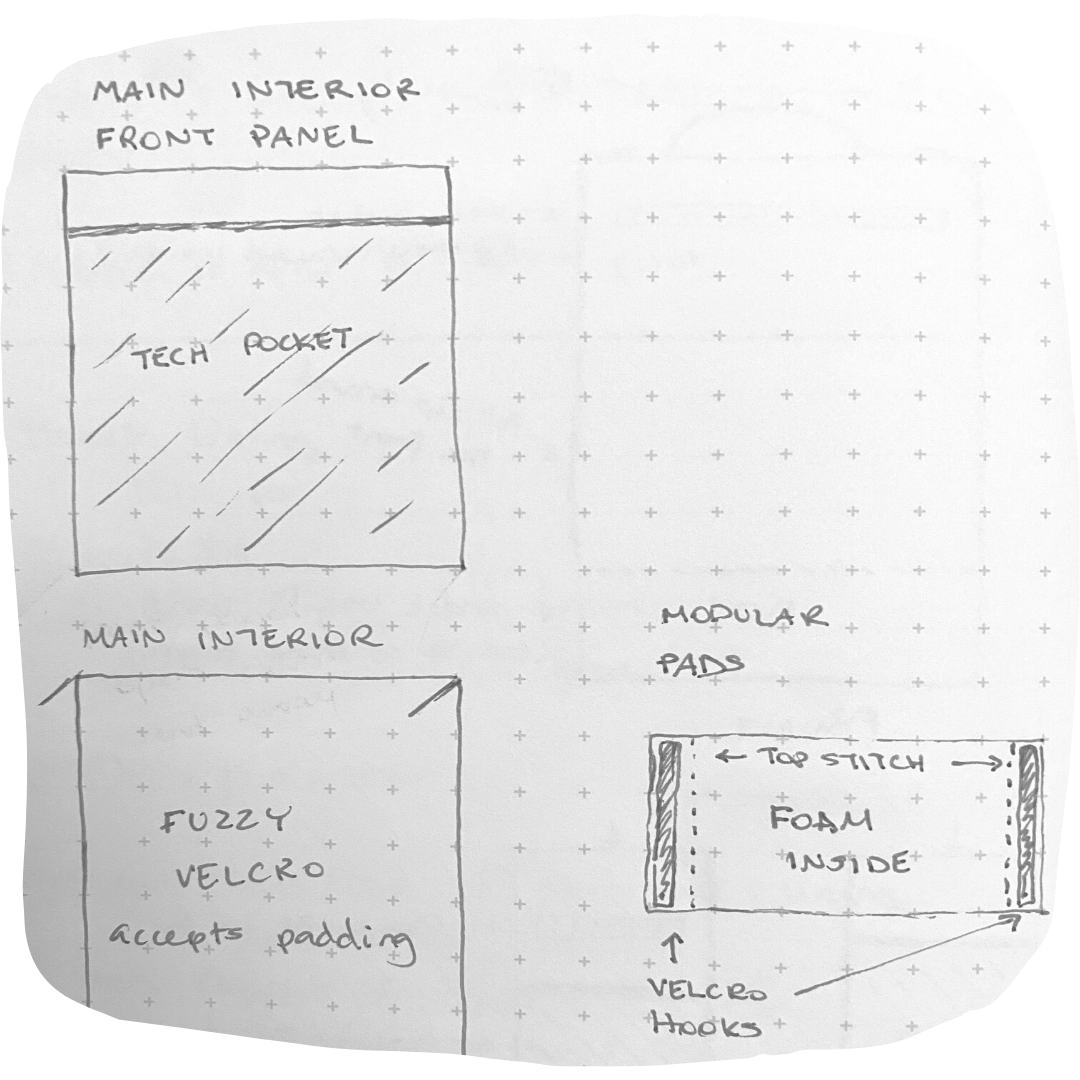 MAIN INTERIOR
FRONT PANEL
TECH POCKET
MAIN INTERIOR
FUZZY
VELCRO
accepts padding
MODULAR
PADS
← TOP STITCH →
FOAM
INSIDE
VELCRO
HOOKS